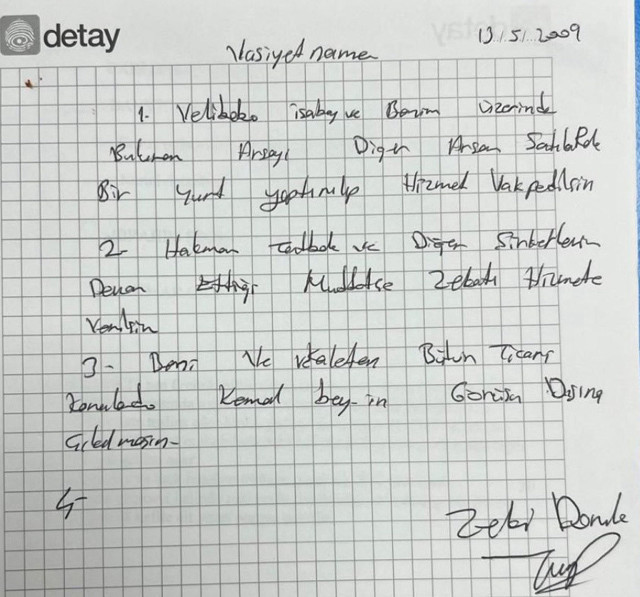 detay
13/5/2009
Vasiyetname
1. Velibaba isabey ve Benim üzerinde
Bulunan Arsayı Diger Arsan Satılıp
Bir yurt yaptırılıp Hizmet Vakpedilsin
2- Hakman ve Diger Sirketlerin
Devam Ettigi Muddetse Zekatı Hizmete
Verilsin
3- Beni Ve vekaleten Bütun Ticari
Konularda Kemal bey-in Görüsü Dısına
Cıkılmasın-
4-
Zeki